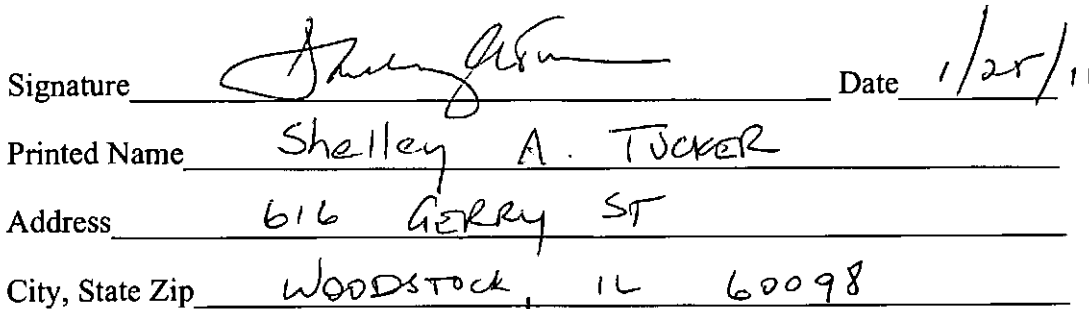 Signature Date 1/25/11
Printed Name Shelley A. TUCKER
Address 616 GERRY ST
City, State Zip WOODSTOCK, IL 60098